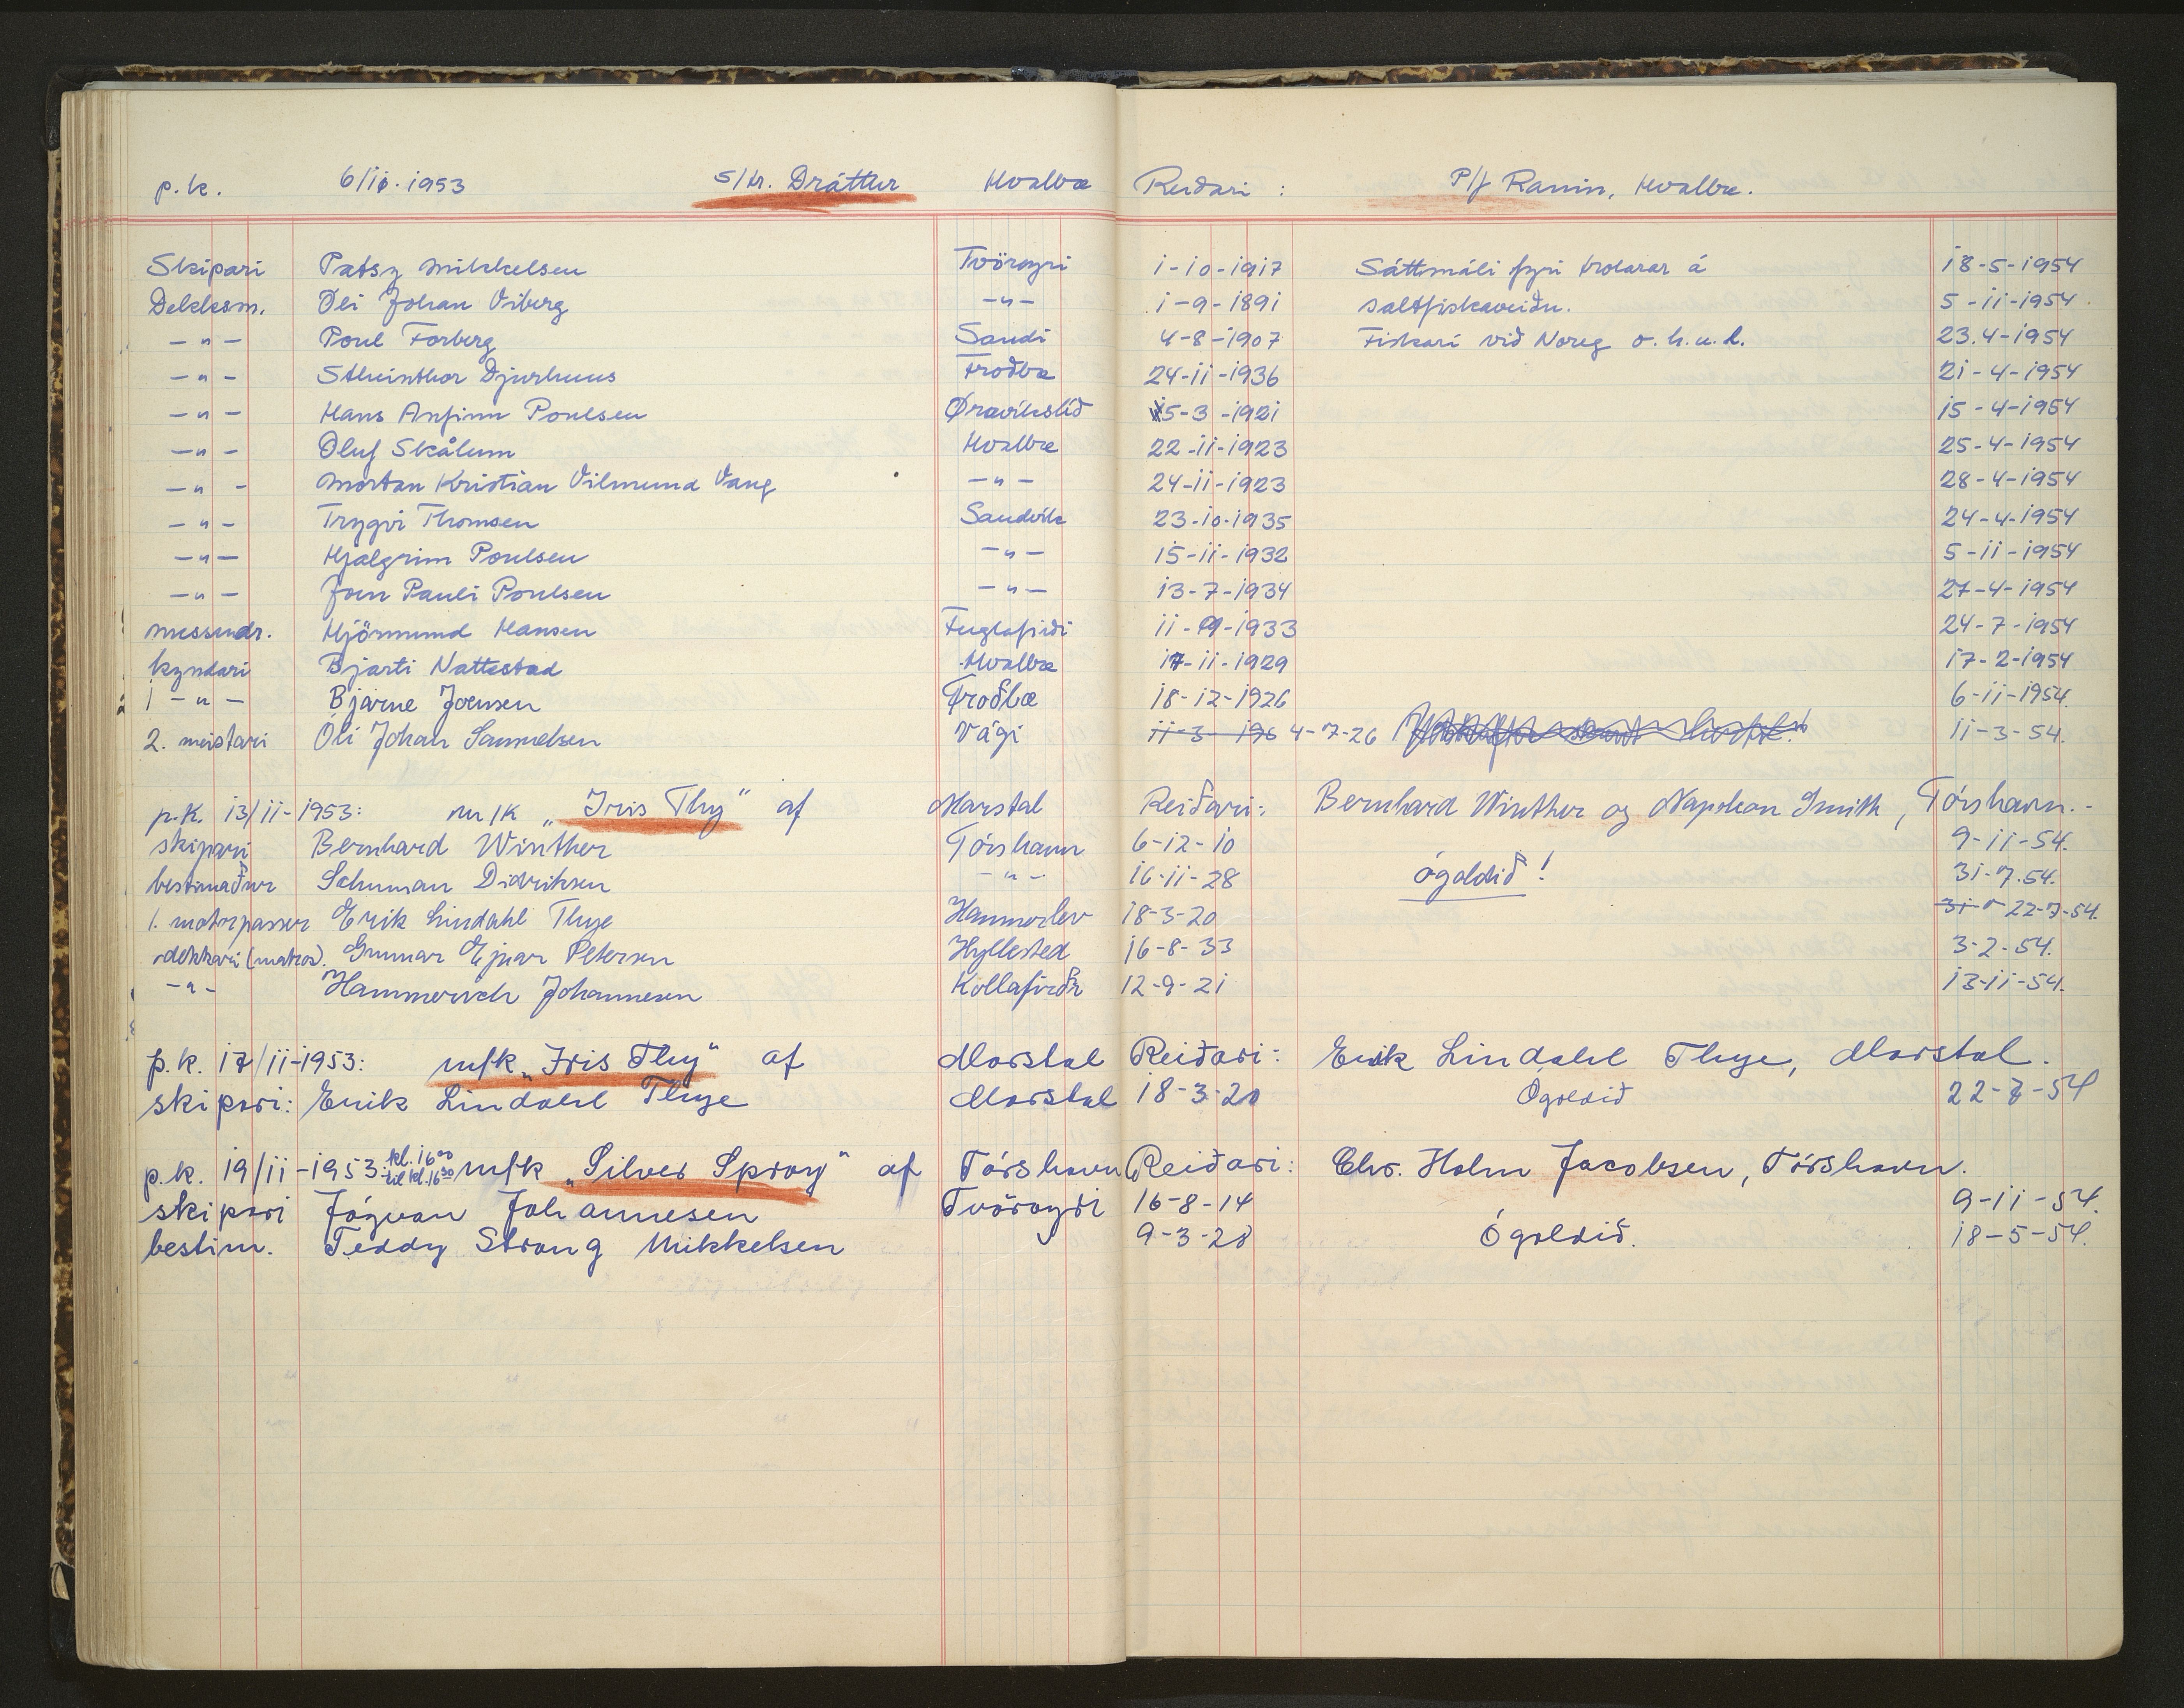 p.k. 6/11.1953 s/tr. Dráttur Hvalbæ Reiðari : P/f Ranin, Hvalbæ.
Skipari Patsy Mikkelsen Tvöroyri 1-10-1917 Sáttmáli fyri trolarar á 18-5-1954
Dekksm. Óli Johan Viberg -"- 1-9-1891 saltfiskaveiðu. 5-11-1954.
-"- Poul Forberg Sandi 4-8-1907 Fiskari við Noreg o.h.u.l. 23.4-1954
-"- Stheinthor Djurhuus Froðbæ 24-11-1936 21-4-1954
-"- Hans Anfinn Poulsen Øravíkslíð 15-3-1921 15-4-1954
-"- Oluf Skålum Hvalbæ 22-11-1923 25-4-1954
-"- Morton Kristian Vilmund Vang -"- 24-11-1923 28-4-1954
-"- Trygvi Thomsen Sandvík 23-10-1935 24-4-1954
-"- Hjalgrim Poulsen -"- 15-11-1932 5-11-1954
-"- Joen Pauli Poulsen -"- 13-7-1934 27-4-1954
messudr. Hjörmund Hansen Fuglafirði 11-9-1933 24-7-1954
kyndari Bjarti Nattestad Hvalbæ 17-11-1929 17-2-1954
1 -"- Bjarne Joensen Froðbæ 18-12-1926 6-11-1954.
2. meistari Óli Johan Samuelsen Vági 11-3-196 4-7-26 11-3-54.
p.K. 13/11-1953: m/k „Iris Thy" af Marstal Reiðari: Bernhard Winther og Napoleon Smith, Tórshavn.-
skipari Bernhard Winther Tórshavn 6-12-10 9-11-54.
bestimaður Schuman Didriksen -"- 16-11-28 ógoldið! 31-7.54.
1. motorpasser Erik Lindahl Thye Hammerlev 18-3-20 31- 22-7-54.
dekkari (matros). Gunnar Ejnar Petersen Hyllested 16-8-33 3-2-54.
-"- Hammerich Johannesen Kollafirði 12-9-21 13-11-54.
p.k. 17/11-1953: m/k „Iris Thy" af Marstal Reiðari: Erik Lindahl Thye, Marstal.
skipari: Erik Lindahl Thye Marstal 18-3-20 Ógoldið 22-7-54
p.k. 19/11-1953: kl. 16⁰⁰ til kl. 16³⁰ m/k „Silver Spray" af Tórshavn Reiðari: Chr. Holm Jacobsen, Tórshavn.
skipari Jógvan Johannesen Tvöroyri 16-8-14 9-11-54.
bestim. Teddy Strong Mikkelsen 9-3-28 Ógoldið. 18-5-54.